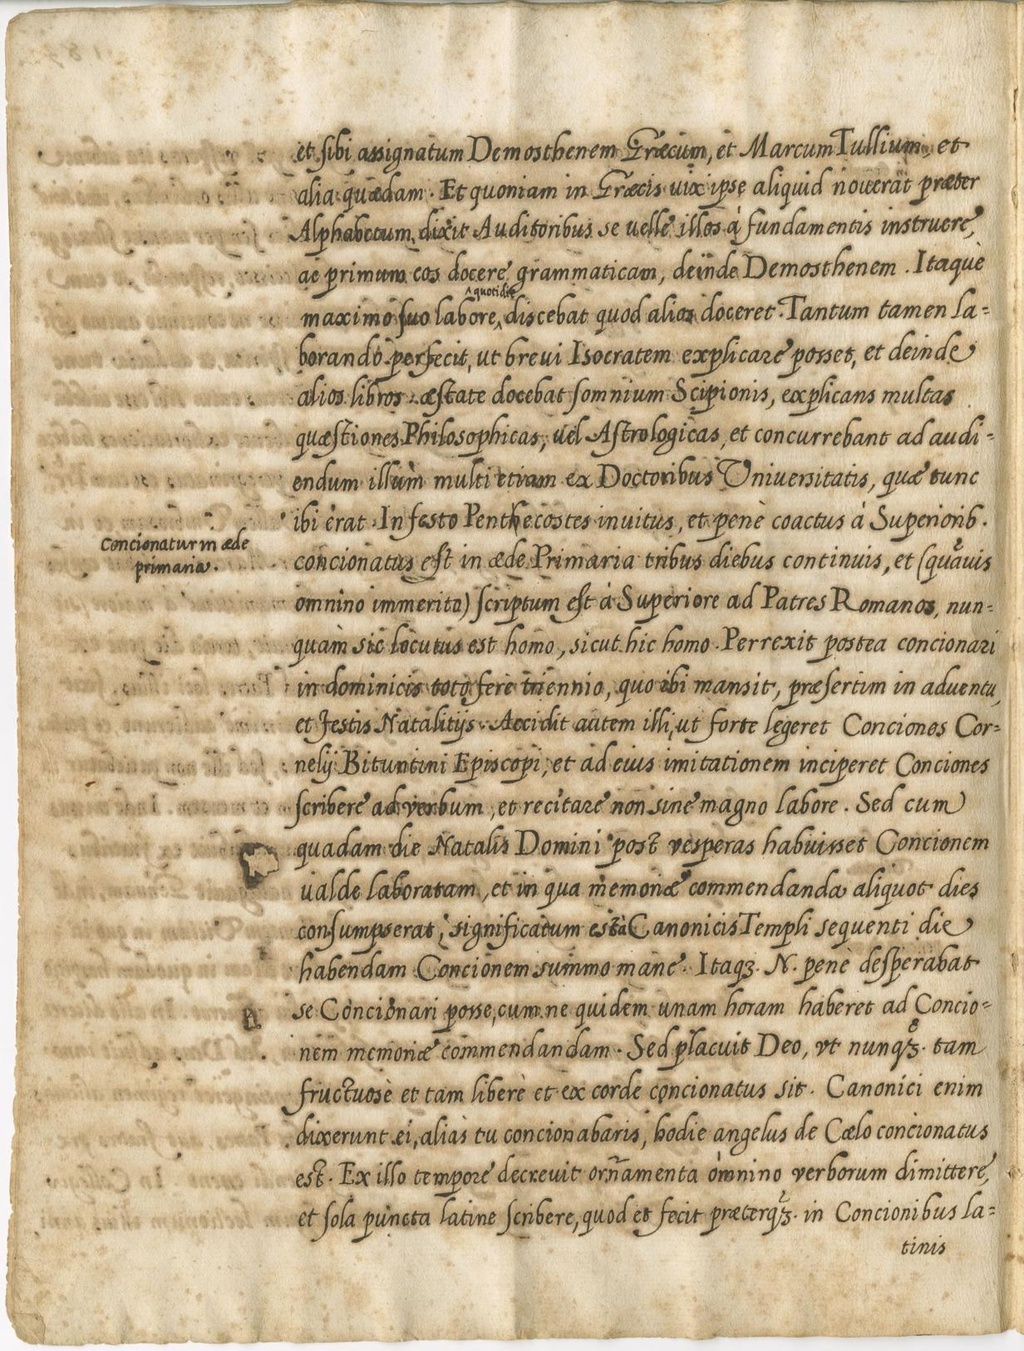 et sibi assignatum Demosthenem Græcum, et Marcum Tullium et
alia quædam. Et quoniam in Græcis uix ipse aliquid nouerat præter
Alphabetum, dixit Auditoribus se uelle illos à fundamentis instruere,
ac primum eos docere grammaticam, deinde Demosthenem. Itaque
quotidie
maximo suo labore, discebat quod alios doceret. Tantum tamen la=
borando perfecit, ut breui Isocratem explicare posset, et deinde
alios libros. æstate docebat somnium Scipionis, explicans multas
quæstiones Philosophicas, uel Astrologicas, et concurrebant ad audi=
endum illum multi etiam ex Doctoribus Vniuersitatis, quæ tunc
ibi erat. In festo Penthecostes inuitus, et penè coactus á Superiorib.
Concionatur in æde
primaria.
concionatus est in æde Primaria tribus diebus continuis, et (quãuis
omnino immerito) scriptum est à Superiore ad Patres Romanos, nun=
quàm sic locutus est homo, sicut hic homo. Perrexit postea concionari
in dominicis toto ferè triennio, quo ibi mansit, præsertim in aduentu,
et festis Natalitijs. Accidit autem illi, ut forte legeret Conciones Cor=
nelij Bituntini Episcopi, et ad eius imitationem inciperet Conciones
scribere ad verbum, et recitare non sine magno labore. Sed cum
quadam die Natalis Domini post vesperas habuisset Concionem
ualde laboratam, et in qua memoriæ commendanda aliquot dies
consumpserat, significatum est à Canonicis Templi sequenti die
habendam Concionem summo mane. Itaqz. N. penè desperabat
se Concionari posse, cum ne quidem unam horam haberet ad Concio=
nem memoriæ commendandam. Sed placuit Deo, vt nunqz. tam
fructuosè et tam liberè et ex corde concionatus sit. Canonici enim
dixerunt ei, alias tu concionabaris, hodie angelus de Cælo concionatus
est. Ex illo tempore decreuit ornamenta omnino verborum dimittere,
et sola puncta latine scribere, quod et fecit præterqz. in Concionibus la=
tinis